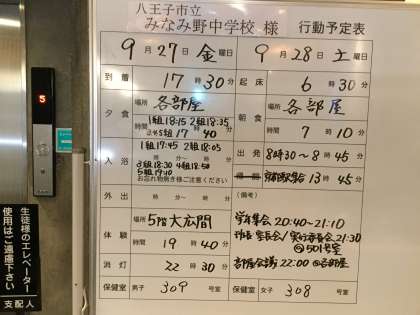 八王子市立
みなみ野中学校 様 行動予定表
9月27日 金曜日 9月28日 土曜日
到着 17時30分 起床 6時30分
夕食 場所 各部屋 朝食 場所 各部屋
1組 18:15 2組 18:35
17時40分 時間 7時10分
入浴 1組 17:45 2組 18:05 出発 8時30~8 45分
3組 18:30 4組 18:50 13時45分
5組 19:10
お忘れ物無き様ご注意ください
外出 時 分~ 時 分 (備考)
体験 場所 5階 大広間 学年集会 20:40~21:10
時間 19時40分 実行委員会 21:30
@501号室
消灯 22時30分 部屋会議 22:00 @各部屋
保健室 男子 309号室 保健室 女子 308号室
5
生徒様のエレベーター
使用はご遠慮下さい
支配人